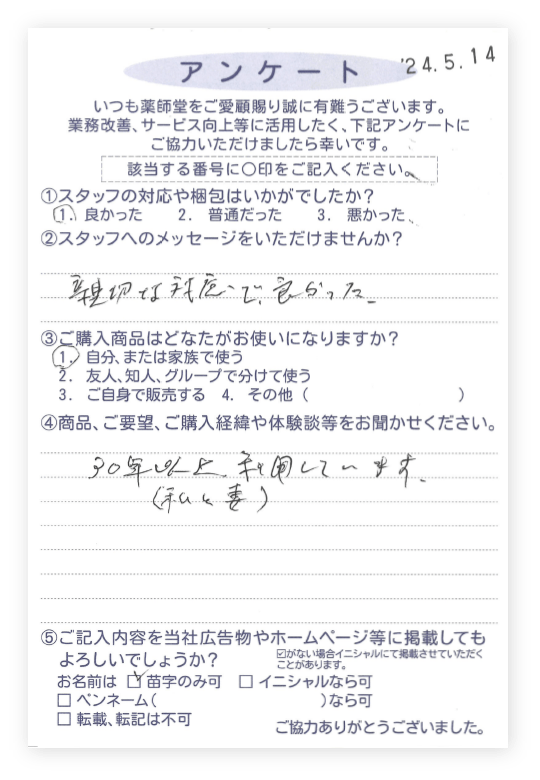 アンケート
'24.5.14
いつも薬師堂をご愛顧賜り誠に有難うございます。
業務改善、サービス向上等に活用したく、下記アンケートに
ご協力いただけましたら幸いです。
該当する番号に〇印をご記入ください。
①スタッフの対応や梱包はいかがでしたか？
1. 良かった 2. 普通だった 3. 悪かった
②スタッフへのメッセージをいただけませんか？
親切な対応で、良かった。
③ご購入商品はどなたがお使いになりますか？
1. 自分、または家族で使う
2. 友人、知人、グループで分けて使う
3. ご自身で販売する 4. その他（ ）
④商品、ご要望、ご購入経緯や体験談等をお聞かせください。
30年以上、利用しています。
(私と妻)
⑤ご記入内容を当社広告物やホームページ等に掲載しても
よろしいでしょうか？
☑がない場合イニシャルにて掲載させていただく
ことがあります。
お名前は ☑ 苗字のみ可 □ イニシャルなら可
□ ペンネーム( )なら可
□ 転載、転記は不可
ご協力ありがとうございました。